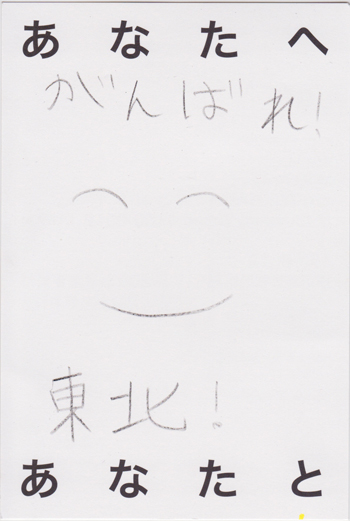 あなたへ
がんばれ!
東北!
あなたと